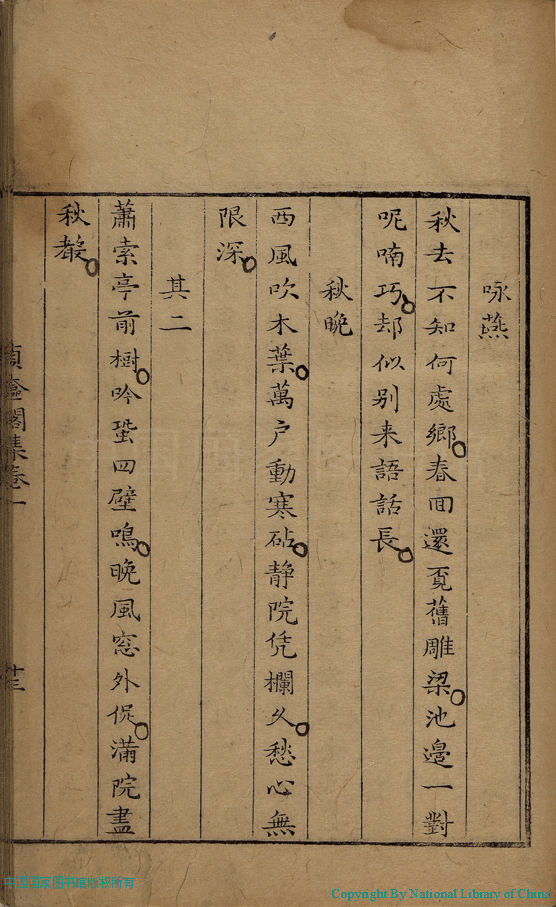 咏燕
秋去不知何處鄉春回還覓舊雕梁池邊一對
呢喃巧却似别来語話長
秋晚
西風吹木葉萬户動寒砧静院凭欄久愁心無
限深
其二
蕭索亭前樹吟蛩四壁鳴晚風窓外促滿院盡
秋聲
閣集卷一
Copyright By National Library of China
中国国家图书馆版权所有